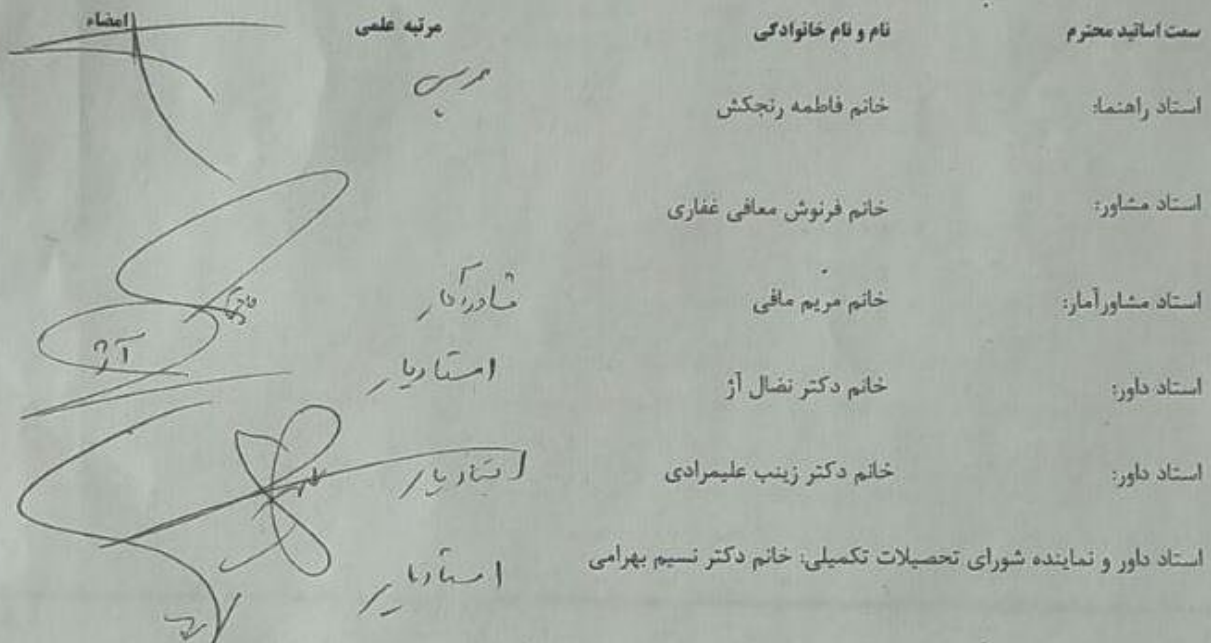 سمت اساتید محترم نام و نام خانوادگی مرتبه علمی امضاء
استاد راهنما: خانم فاطمه رنجکش مربی
استاد مشاور: خانم فرنوش معافی غفاری
استاد مشاورآمار: خانم مریم مافی مشاورآمار
استاد داور: خانم دکتر نضال آژ استادیار
آژ
استاد داور: خانم دکتر زینب علیمرادی استادیار
استاد داور و نماینده شورای تحصیلات تکمیلی: خانم دکتر نسیم بهرامی استادیار